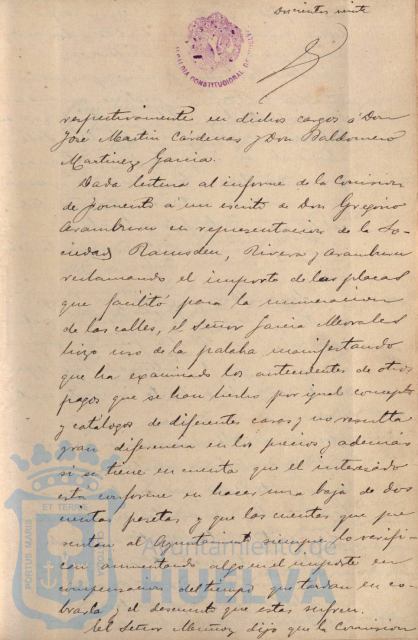 Doscientos veinte
ALCALDIA CONSTITUCIONAL DE
respectivamente en dichos cargos á Don
José Martin Cárdenas y Don Baldomero
Martinez Garcia.
Dada lectura al informe de la Comision
de Fomento á un escrito de Don Gregorio
Aramburu en representacion de la So-
ciedad Ramsden, Rivera y Aramburu
reclamando el importe de las placas
que facilitó para la numeracion
de las calles, el Señor Garcia Morales
hizo uso de la palabra manifestando
que ha examinado los antecedentes de otros
pagos que se han hecho por igual concepto
y catálogos de diferentes casas y no resulta
gran diferencia en los precios y ademas
si se tiene en cuenta que el interesado
está conforme en hacer una baja de dos
cientas pesetas y que las cuentas que pre
sentan al Ayuntamiento siempre lo verifi-
can aumentando algo en el importe en
compensacion del tiempo que tardan en co-
brarla y el descuento que estas sufren.
El Señor Muñoz dijo que la Comision
PORTUS MARIS
ET TERRE
Ayuntamiento de
HUELVA